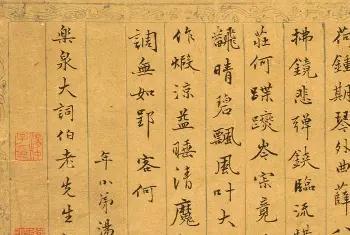 鍾期琴外曲薜
拂鏡悲彈鋏臨流
莊何蹀躞岑寂竟
晴碧飄風叶大
作煅涼益睡清魔
調無如郢客何
年小弟湯
樂泉大詞伯老先生